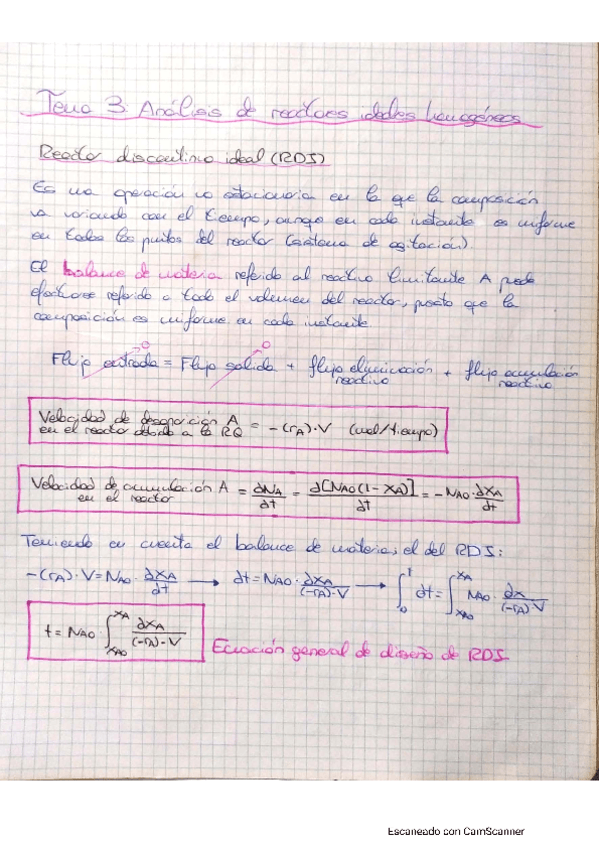 Tema 3: Análisis de reactores ideales homogéneos
Reactor discontinuo ideal (RDI)
Es una operación no estacionaria en la que la composición
va variando con el tiempo, aunque en cada instante es uniforme
en todos los puntos del reactor (sistema de agitación)
El balance de materia referido al reactivo limitante A puede
efectuarse referido a todo el volumen del reactor, puesto que la
composición es uniforme en cada instante
Flujo entrada →0 = Flujo salida →0 + flujo eliminación reactivo + flujo acumulación reactivo
Velocidad de desaparición A
en el reactor debido a la RQ = -(rA)·V (mol/tiempo)
Velocidad de acumulación A
en el reactor = dNA/dt = d[NAO(1-XA)]/dt = -NAO·dXA/dt
Teniendo en cuenta el balance de materia, el del RDI:
-(rA)·V = NAO·dXA/dt → dt = NAO·dXA/(-rA)·V → ∫₀ᵗ dt = ∫XAO^XA NAO·dx/(-rA)·V
t = NAO·∫XAO^XA dXA/(-rA)-V Ecuación general de diseño de RDI
Escaneado con CamScanner